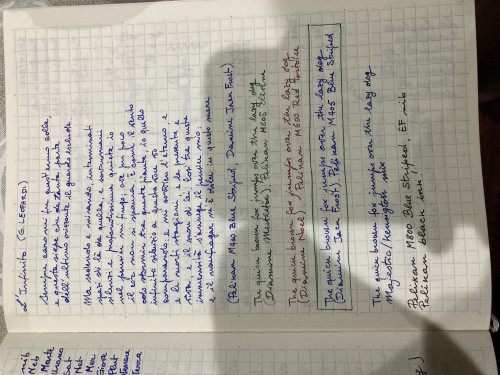 L'Infinito (G. LEOPARDI)
Sempre caro mi fu quest'ermo colle
e questa siepe che da tanta parte
dell'ultimo orizzonte il guardo esclude
Ma sedendo e mirando, interminati
spazi di là da quella, e sovrumani
silenzi, e profondissima quiete io
nel pensier mi fingo, ove per poco
il cor non si spaura. E come il vento
odo stormir tra queste piante, io quello
infinito silenzio a questa voce
vo comparando, e mi sovvien l'eterno e
e le morti stagioni, e la presente e
viva, e il suon di lei. Così tra questa
immensità s'annega il pensier mio,
e il naufragar m'è dolce in questo mare
(Pelikan M400 Blue Striped, Diamine Jack Frost)
The quick brown fox jumps over the lazy dog
(Diamine Mistletoe) Pelikan M805
The quick brown fox jumps over the lazy dog
(Diamine Noel) Pelikan M600 Red Tortoise
The quick brown fox jumps over the lazy dog
(Diamine Jack Frost) Pelikan M405 Blue Striped
The quick brown fox jumps over the lazy dog
Majestic/Kensington mix
Pelikan M800 Blue Striped, EF nib
Pelikan black ink
nib
Neb
Sat
Net
Mer
Giove
Plut
Venere
Terra